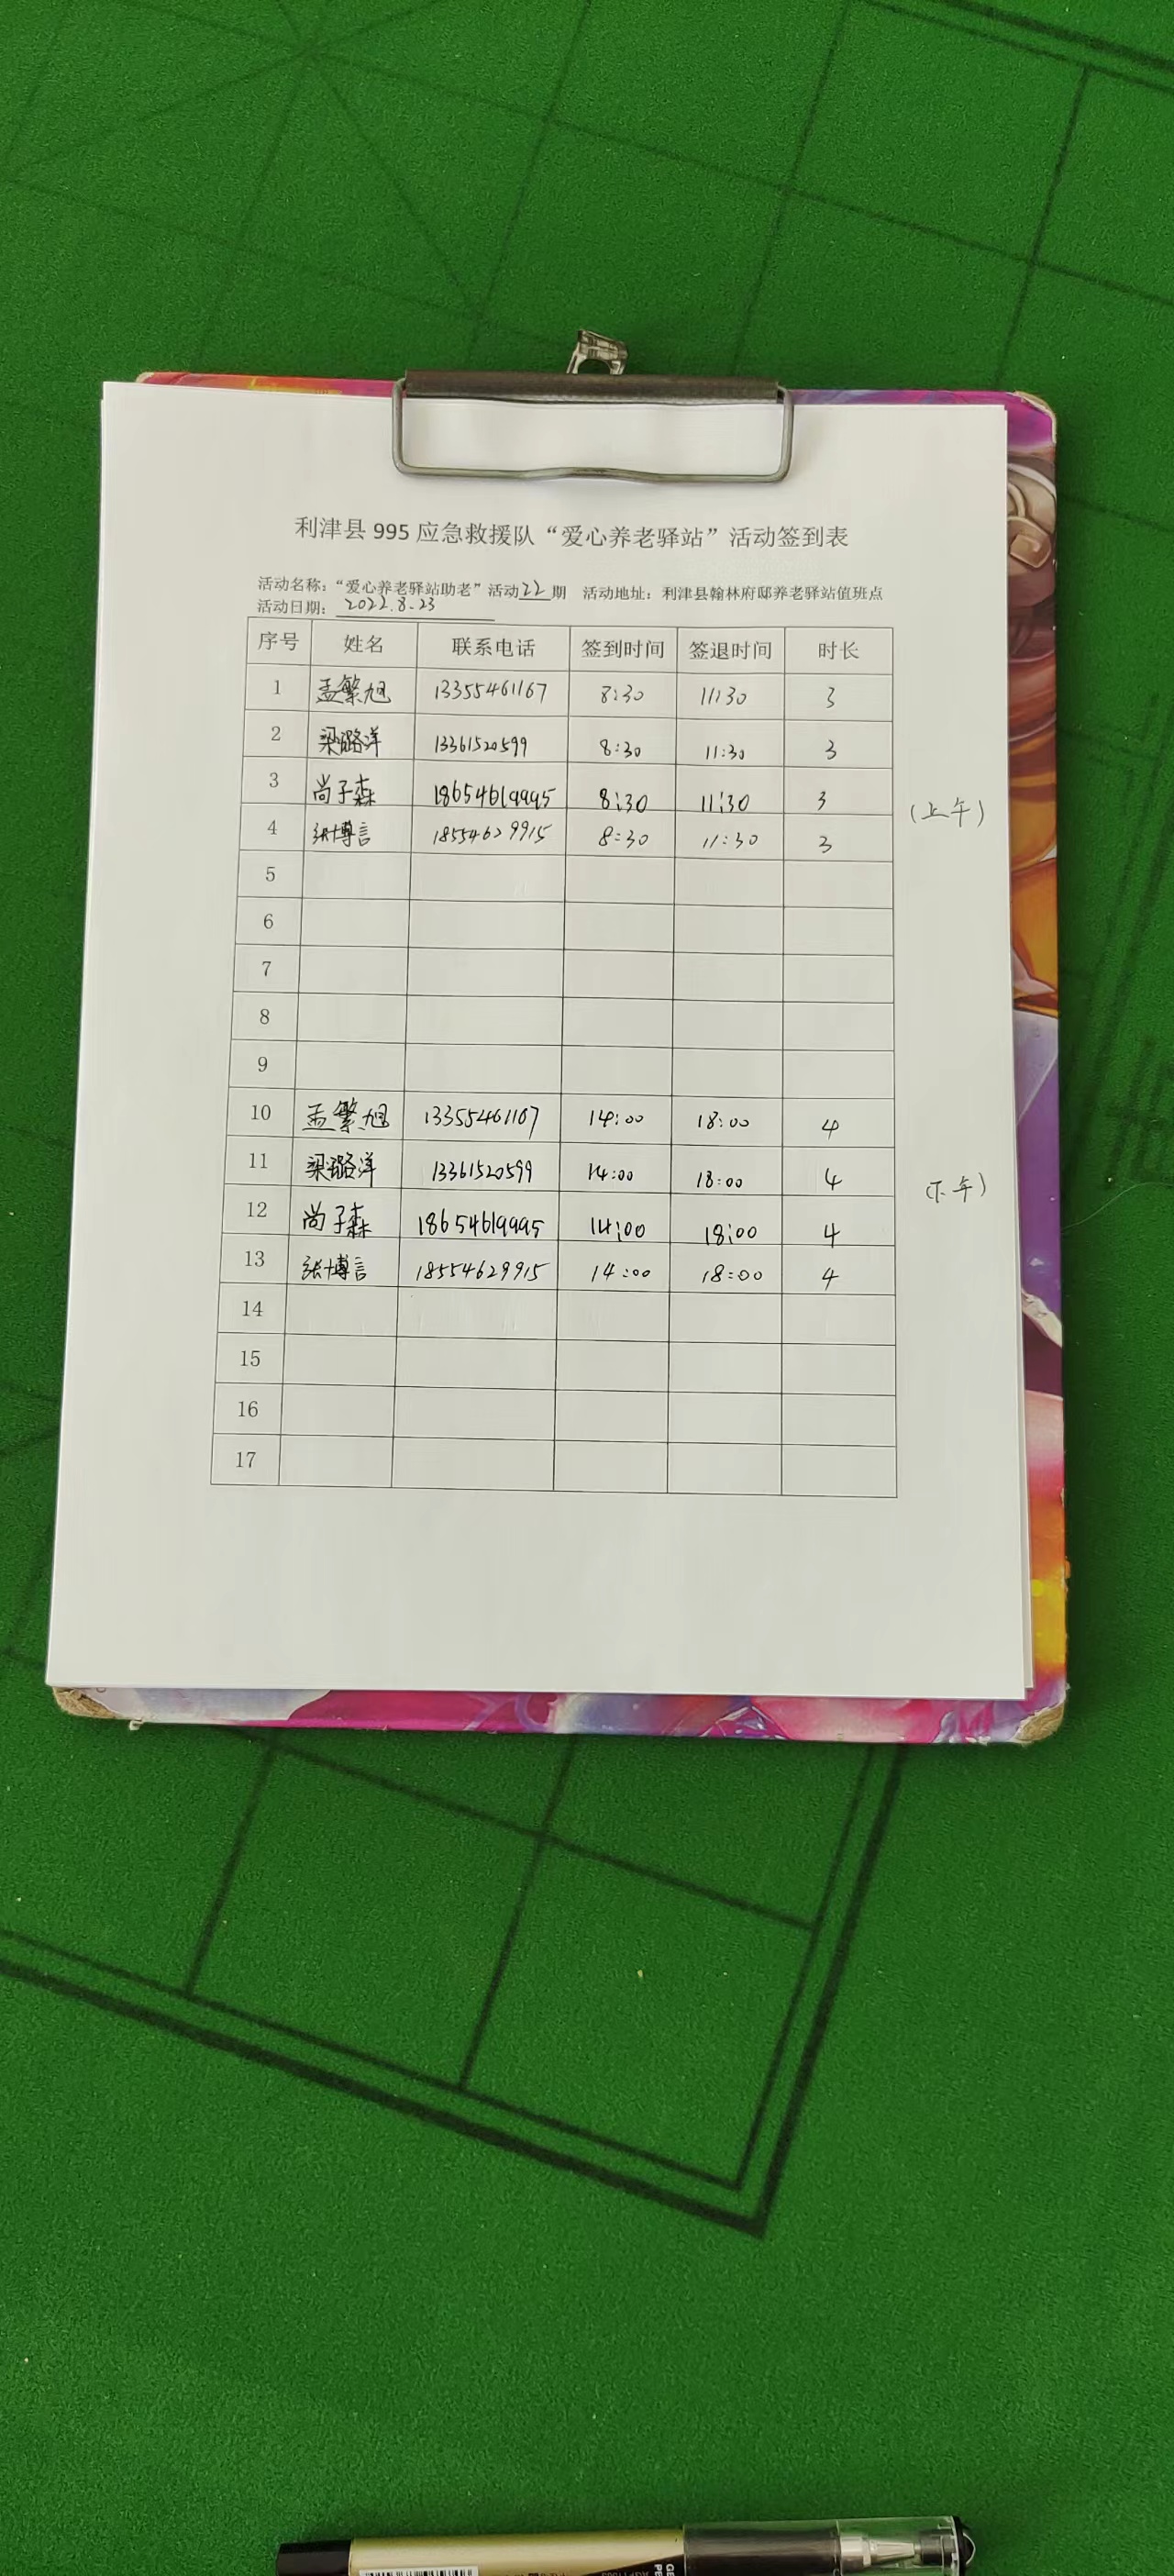 利津县 995 应急救援队“爱心养老驿站”活动签到表
活动名称：“爱心养老驿站助老”活动22期 活动地址：利津县翰林府邸养老驿站值班点
活动日期：2022.8.23
序号 姓名 联系电话 签到时间 签退时间 时长
1 孟繁旭 13355461167 8:30 11:30 3
2 梁潞洋 13361520599 8:30 11:30 3
3 尚子森 18654619995 8:30 11:30 3
（上午）
4 张博言 18554629915 8:30 11:30 3
5
6
7
8
9
10 孟繁旭 13355461167 14:00 18:00 4
11 梁潞洋 13361520599 14:00 18:00 4
（下午）
12 尚子森 18654619995 14:00 18:00 4
13 张博言 18554629915 14:00 18:00 4
14
15
16
17